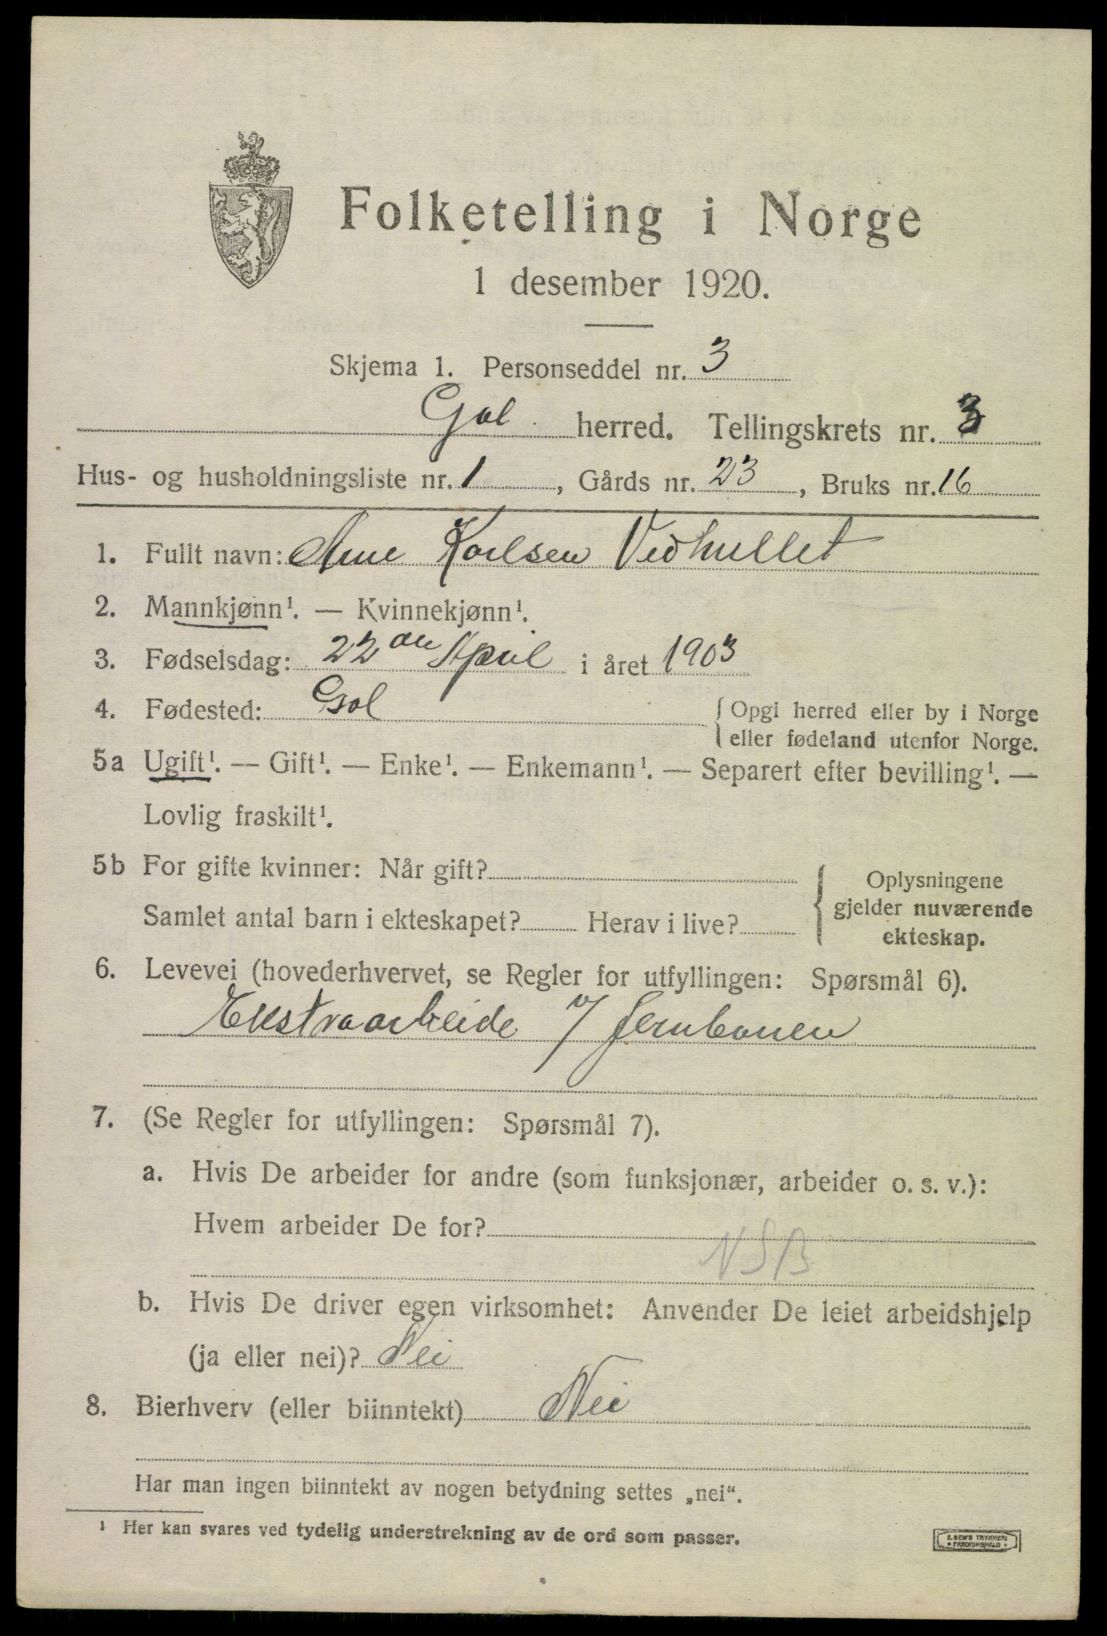 Folketelling i Norge
1 desember 1920.
Skjema 1. Personseddel nr. 3
Gol herred. Tellingskrets nr. 3
Hus- og husholdningsliste nr. 1, Gårds nr. 23, Bruks nr. 16
1. Fullt navn: Arne Karlsen Vedhullet
2. Mannkjønn¹. — Kvinnekjønn¹.
3. Fødselsdag: 22 den April i året 1903
4. Fødested: Gol {Opgi herred eller by i Norge
eller fødeland utenfor Norge.
5a Ugift¹. — Gift¹. — Enke¹. — Enkemann¹. — Separert efter bevilling¹. —
Lovlig fraskilt¹.
5b For gifte kvinner: Når gift?
Samlet antal barn i ekteskapet? Herav i live?
{Oplysningene
gjelder nuværende
ekteskap.
6. Levevei (hovederhvervet, se Regler for utfyllingen: Spørsmål 6).
Ekstraarbeide v/ Jernbanen
7. (Se Regler for utfyllingen: Spørsmål 7).
a. Hvis De arbeider for andre (som funksjonær, arbeider o. s. v.):
Hvem arbeider De for?
NSB
b. Hvis De driver egen virksomhet: Anvender De leiet arbeidshjelp
(ja eller nei)? Nei
8. Bierhverv (eller biinntekt) Nei
Har man ingen biinntekt av nogen betydning settes „nei".
¹ Her kan svares ved tydelig understrekning av de ord som passer.
E. SEM'S TRYKKERI
• FREDRIKSHALD •